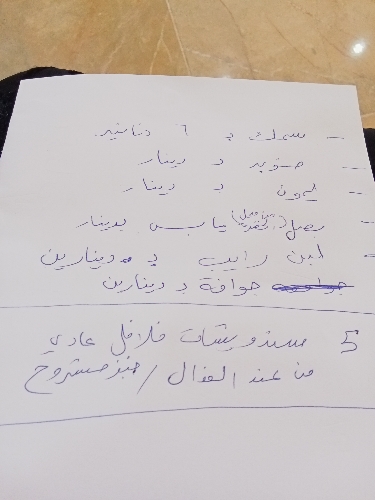 - سمك ب ٦ دنانير
- صنوبر ب دينار
- ليمون ب دينار
- بصل ( ) يابس بدينار
- لبن رايب ب دينارين
جوافة ب دينارين
5 سندويشات فلافل عادي
من عند الغزال / خبز مشروح